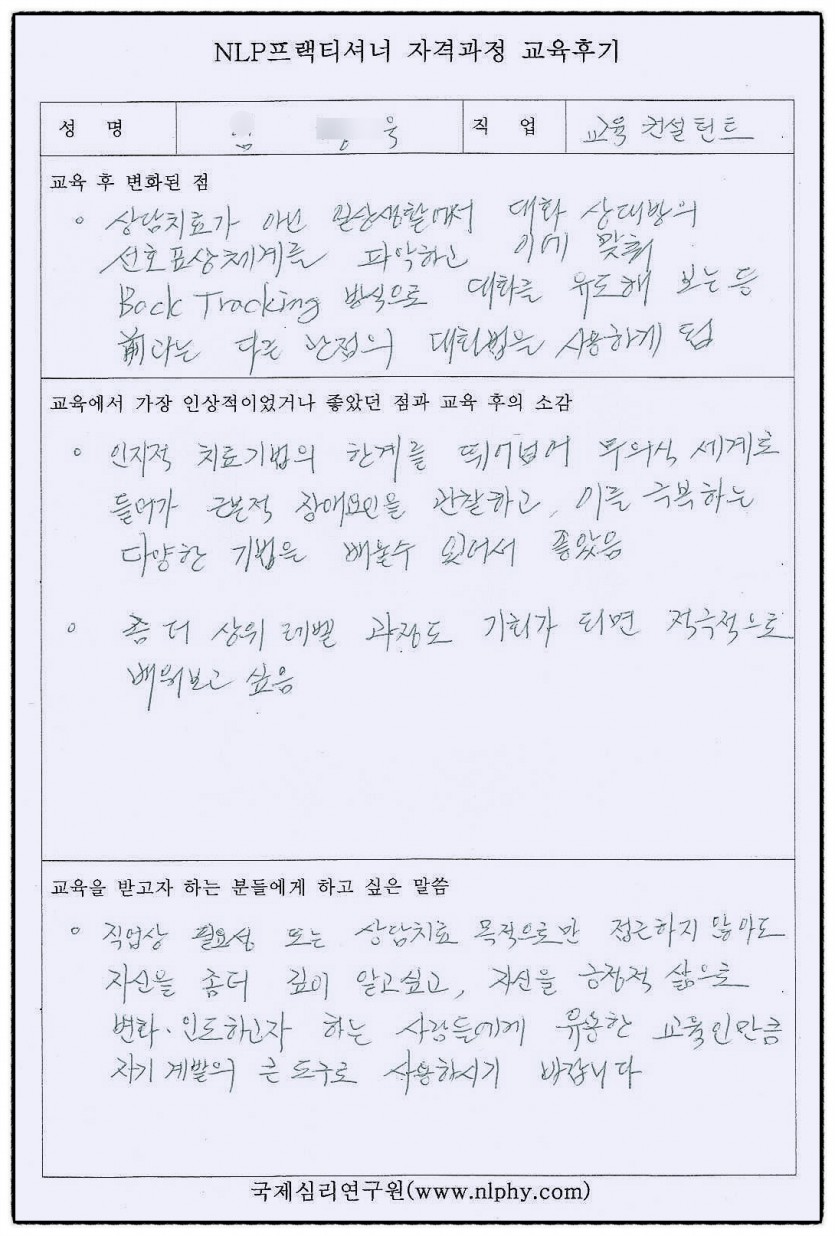 NLP프랙티셔너 자격과정 교육후기
성 명 욱 직 업 교육 컨설턴트
교육 후 변화된 점
○ 상담치료가 아닌 일상생활에서 대화 상대방의
선호표상체계를 파악하고 이에 맞춰
Back Tracking 방식으로 대화를 유도해 보는 등
前과는 다른 관점의 대화법을 사용하게 됨
교육에서 가장 인상적이었거나 좋았던 점과 교육 후의 소감
○ 인지적 치료기법의 한계를 뛰어넘어 무의식 세계로
들어가 근본적 장애요인을 관찰하고, 이를 극복하는
다양한 기법을 배울수 있어서 좋았음
○ 좀 더 상위 레벨 과정도 기회가 되면 적극적으로
배워보고 싶음
교육을 받고자 하는 분들에게 하고 싶은 말씀
○ 직업상 필요성 또는 상담치료 목적으로만 접근하지 않아도
자신을 좀더 깊이 알고싶고, 자신을 긍정적 삶으로
변화·인도하고자 하는 사람들에게 유용한 교육인만큼
자기계발의 큰 도구로 사용하시기 바랍니다
국제심리연구원(www.nlphy.com)